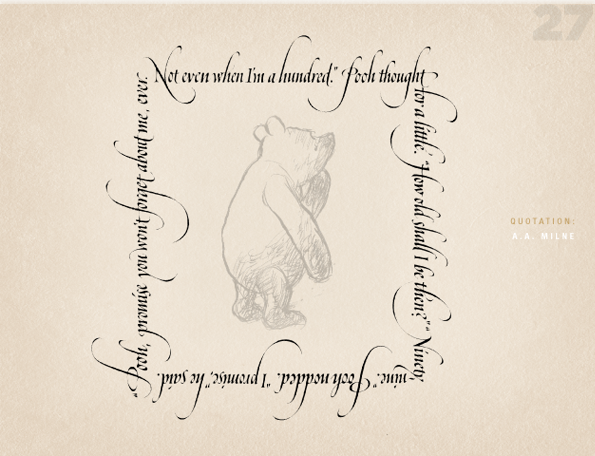 27
“Pooh, promise you won't forget about me, ever.
Not even when I'm a hundred.” Pooh thought
for a little. “How old shall I be then?” “Ninety-
nine.” Pooh nodded. “I promise,” he said.
QUOTATION:
A.A. MILNE